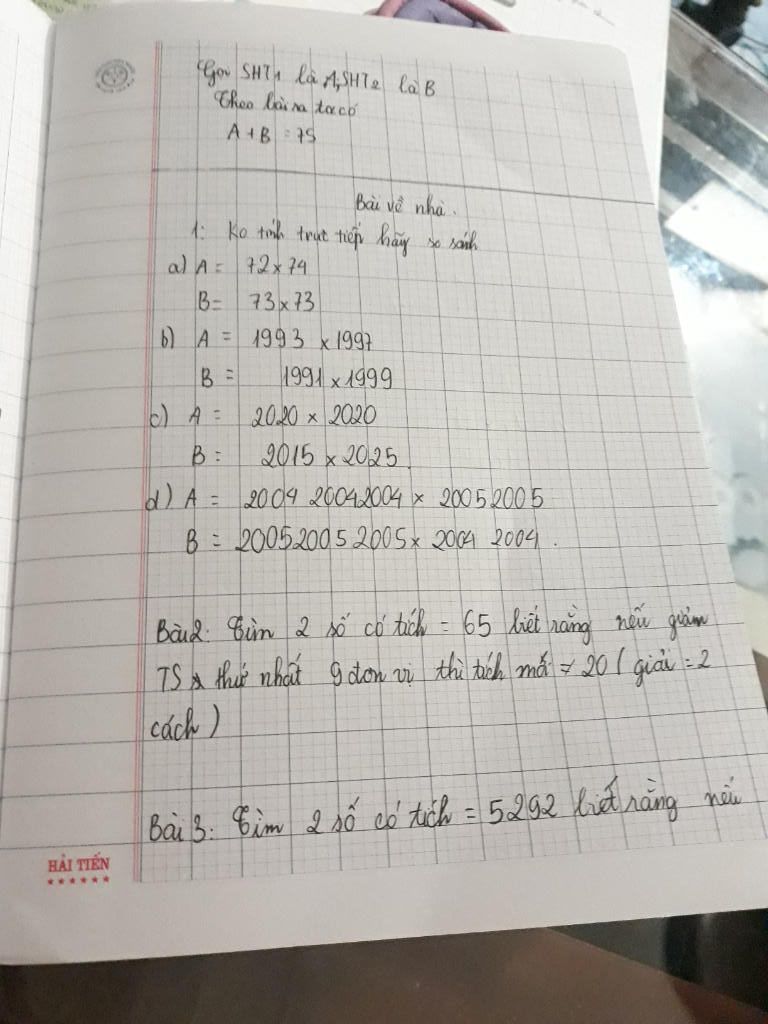 Gọi SHT1 là A, SHT2 là B
Theo bài ra ta có
A + B = 75
Bài về nhà.
1: Ko tính trực tiếp hãy so sánh
a) A = 72 x 74
B = 73 x 73
b) A = 1993 x 1997
B = 1991 x 1999
c) A = 2020 x 2020
B = 2015 x 2025
d) A = 2004 20042004 x 20052005
B = 200520052005 x 2004 2004.
Bài 2: Tìm 2 số có tích = 65 biết rằng nếu giảm
TS thứ nhất 9 đơn vị thì tích mới = 20 ( giải = 2
cách )
Bài 3: Tìm 2 số có tích = 5292 biết rằng nếu
HẢI TIẾN